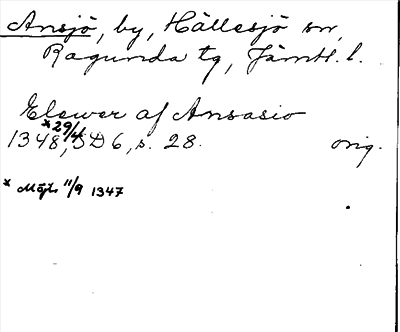 Ansjö, by, Hällesjö sn,
Ragunda tg, Jämtl. l.
Elewer af Ansasio
* 29/4
1348, SD 6, s. 28. orig.
* Möjl. 11/9 1347